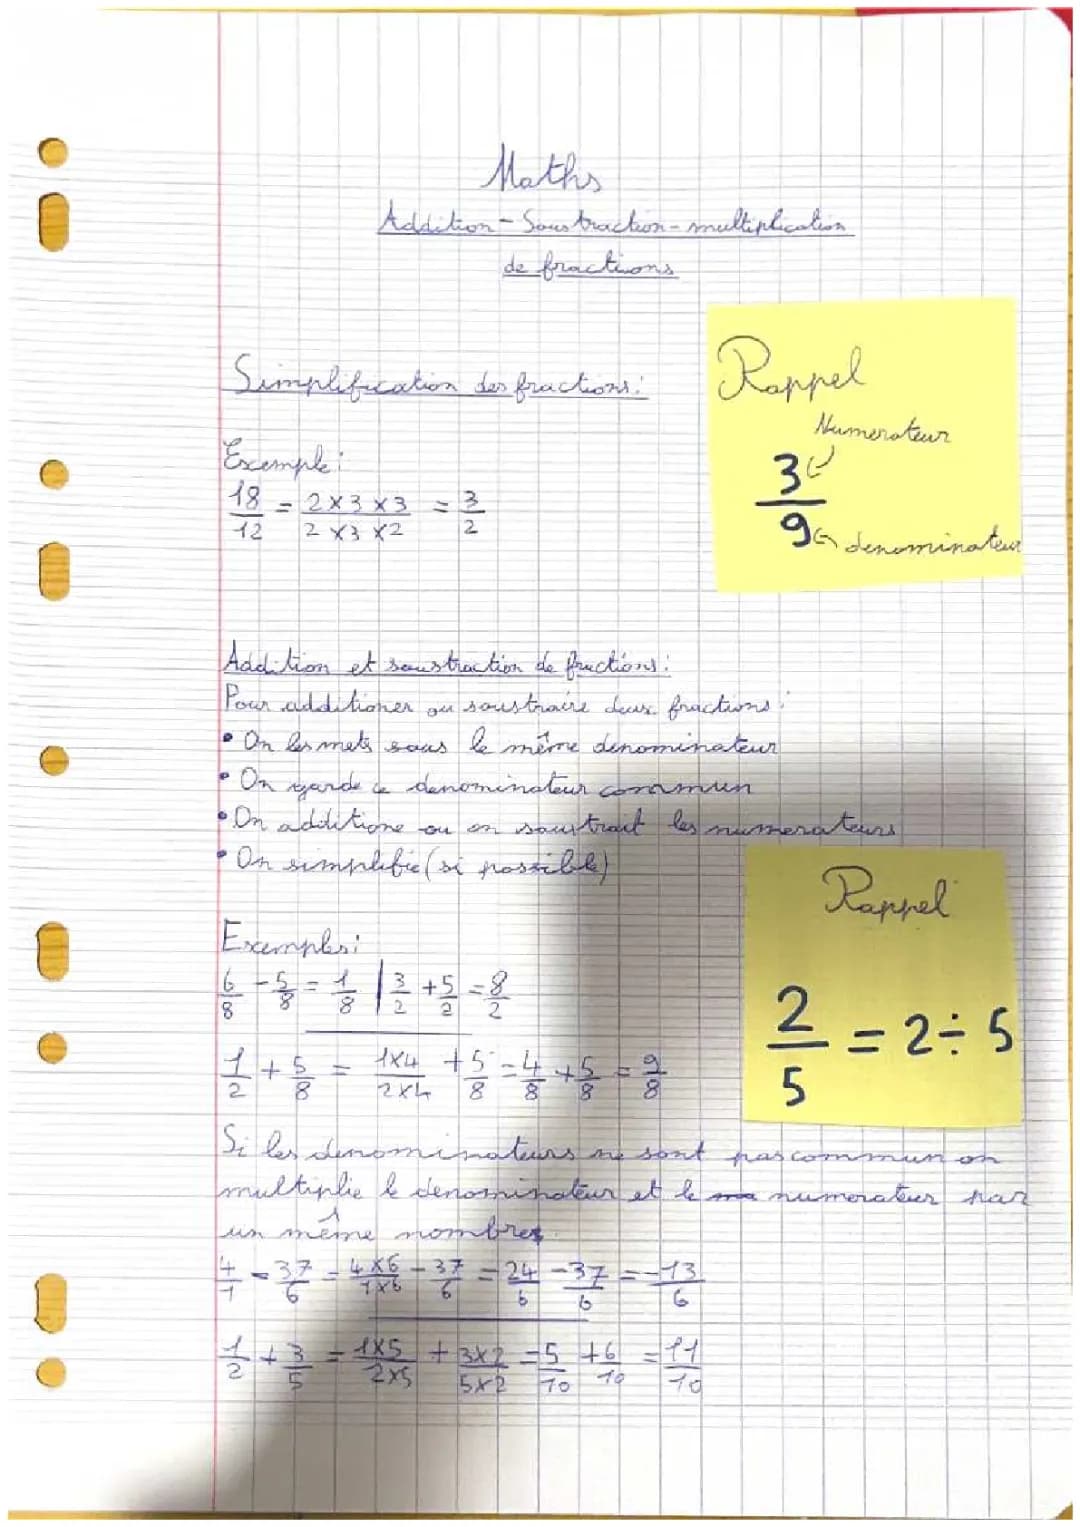 Maths
Addition - Soustraction - multiplication
de fractions
Simplification des fractions:
Rappel
Numerateur
3
9
denominateur
Exemple:
18/12 = 2×3×3/2×3×2 = 3/2
Addition et soustraction de fractions:
Pour additioner ou soustraire deux fractions:
• On les mets sous le même dénominateur
• On garde ce denominateur commun
• On additione ou on soustrait les numerateurs
• On simplifie (si possible)
Rappel
2/5 = 2÷5
Exemples:
6/8 - 5/8 = 1/8 | 3/2 + 5/2 = 8/2
1/2 + 5/8 = 1×4/2×4 + 5/8 = 4/8 + 5/8 = 9/8
Si les dénominateurs ne sont pas commun on
multiplie le dénominateur et le numerateur par
un même nombres
4/1 - 37/6 = 4×6/1×6 - 37/6 = 24/6 - 37/6 = -13/6
1/2 + 3/5 = 1×5/2×5 + 3×2/5×2 = 5/10 + 6/10 = 11/10